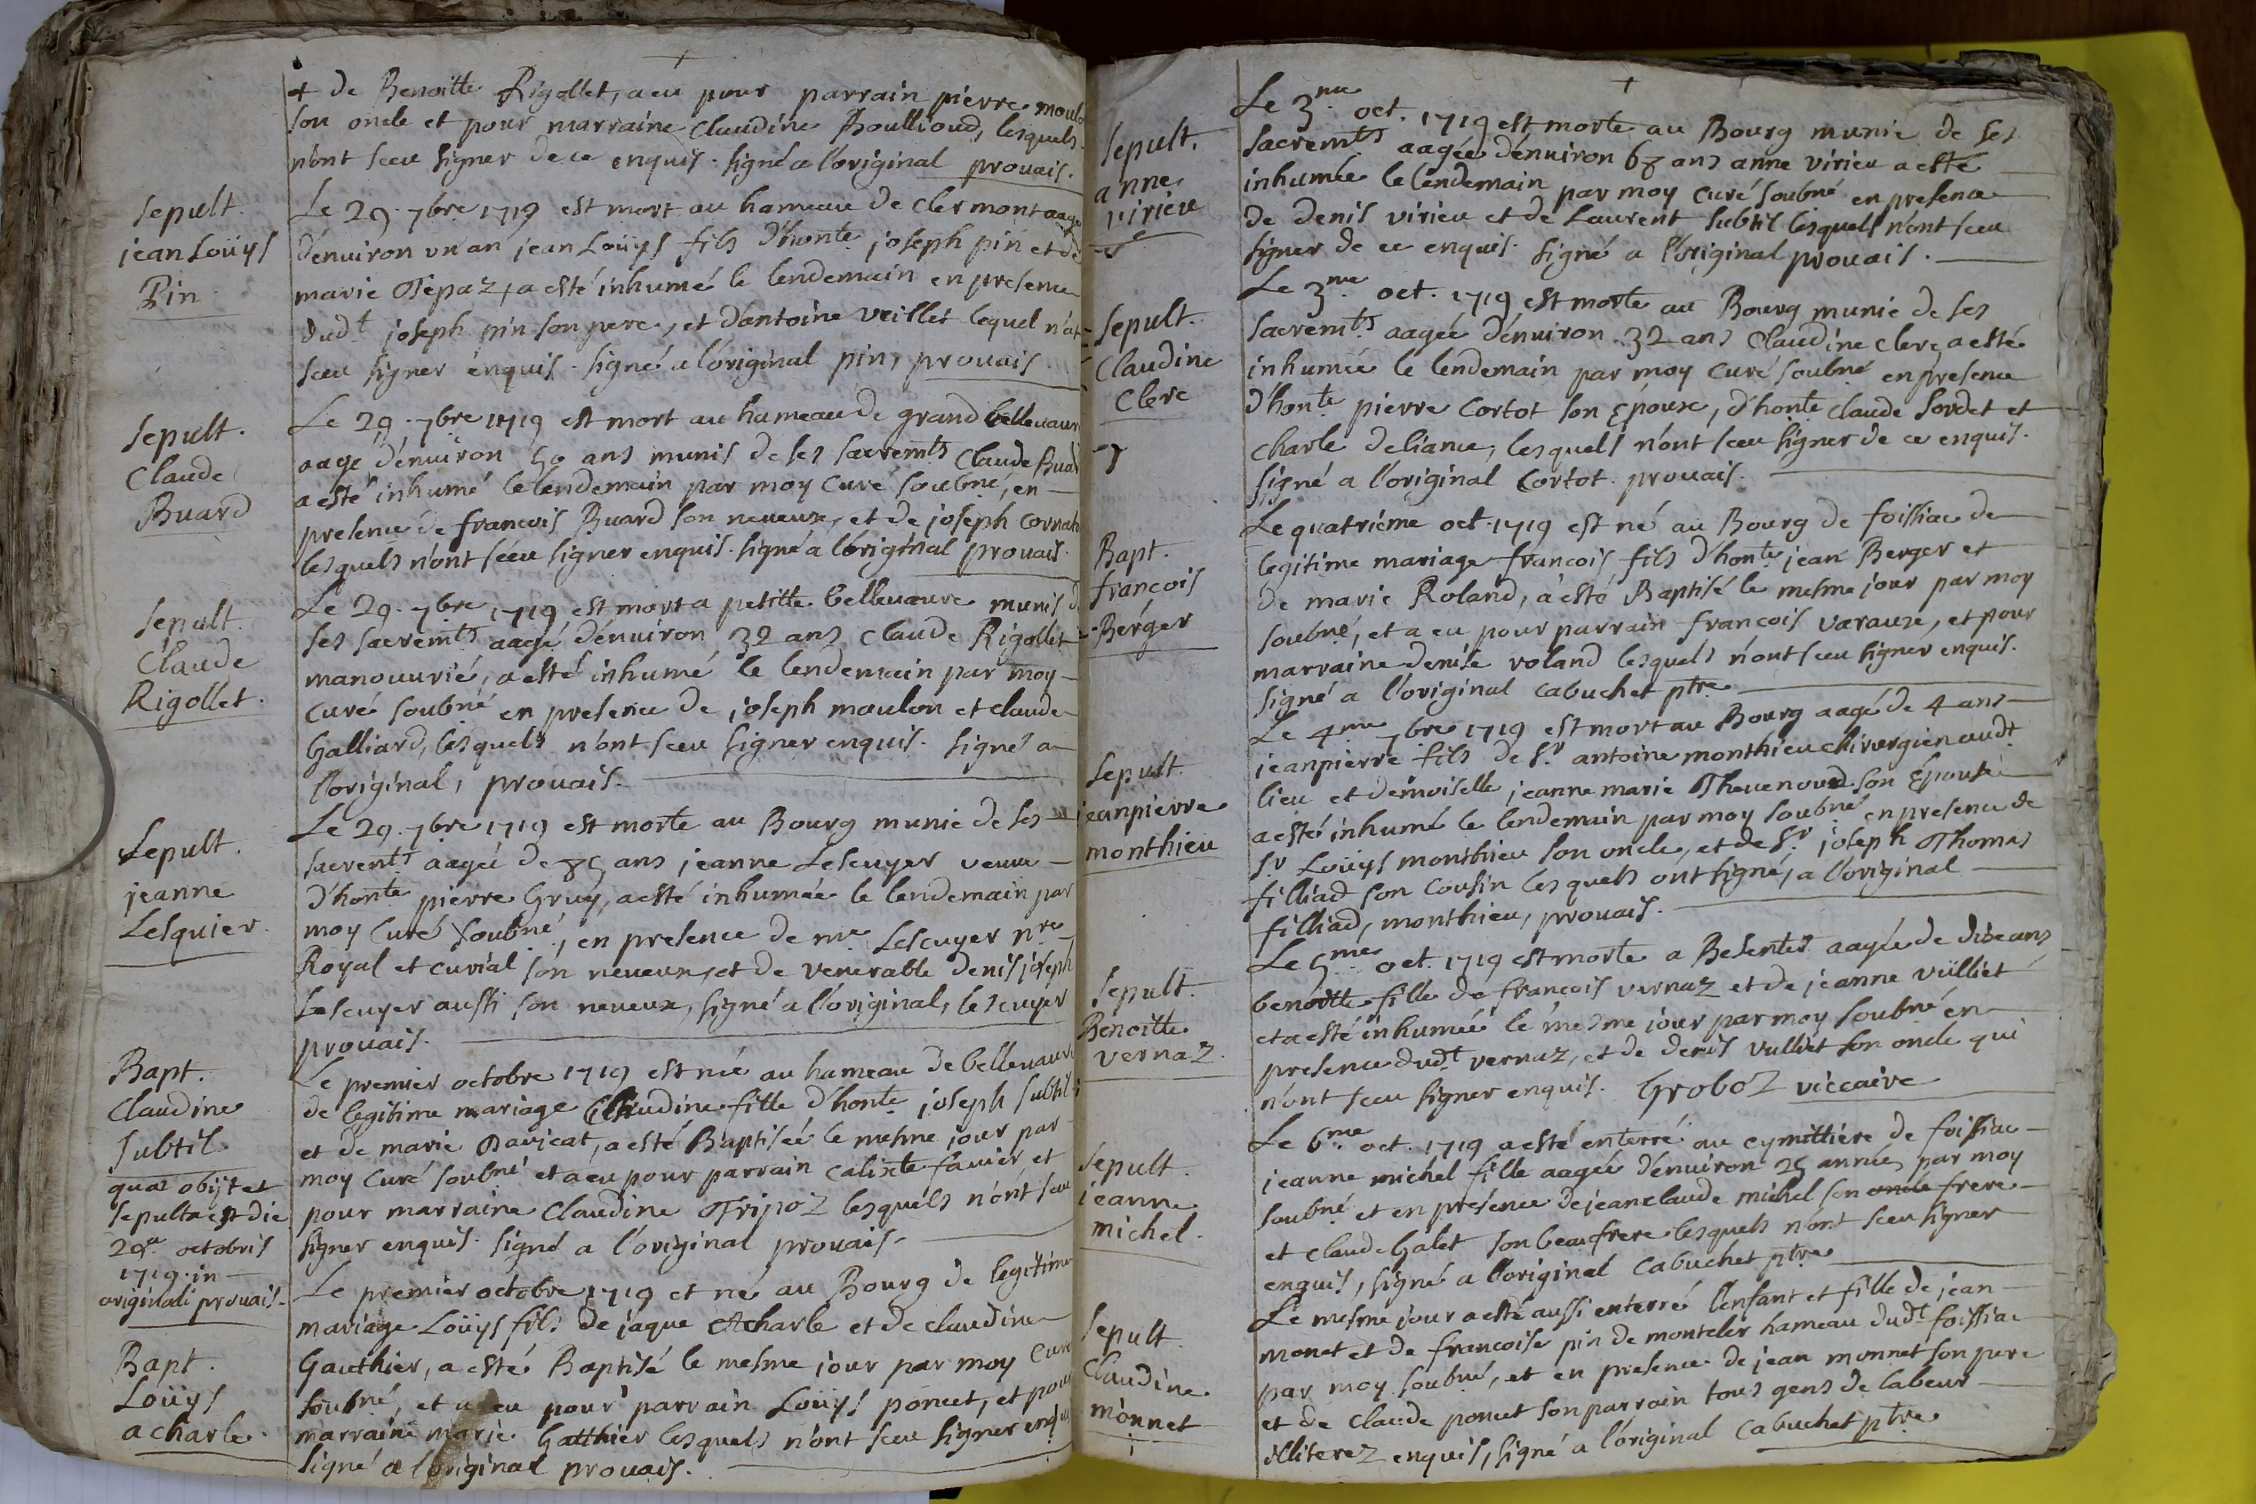 + de Benoitte Rigollet, a eu pour parrain pierre moulo
son oncle et pour marraine Claudine Boullioud, lesquels
n'ont sceu signer de ce enquis. signé a l'original prouais.
sepult.
jean Loüys
Pin
Le 29. 7bre 1719 est mort au hameau de clermont aagé
d'enuiron vn an jean Loüys fils d'honte joseph pin et de
marie Tepaz, a esté inhumé le lendemain en presence
dudt joseph pin son pere, et d'antoine veillet lequel n'at
sceu signer énquis. signé a l'original pin, prouais
sepult.
Claude
Buard
Le 29. 7bre 1719 est mort au hameau de grand bellevaure
aagé d'énuiron 50 ans munis de ses sacremts Claude Buard
a esté inhumé le lendemain par moy curé soubné, en
presence de francois Buard son neueux, et de joseph cornat
lesquels n'ont scéu signer enquis. signé a l'original prouais.
sepult.
Claude
Rigollet.
Le 29. 7bre 1719 est mort a petitte bellevaure munis d
ses sacremts aagé d'énuiron 32 ans Claude Rigollet
manouurié, a esté inhumé le lendemain par moy
curé soubné en presence de joseph moulon et claude
Galliard, lesquels n'ont sceu signer enquis. signé a
l'original, prouais.
Sepult.
jeanne
Lesquier.
Le 29. 7bre 1719 est morte au Bourg munie de ses
sacremts aagée de 85 ans jeanne Lescuyer veuue
d'honte pierre Gruy, a esté inhumée le lendemain par
moy Curé soubné, en presence de me Lescuyer nre
Royal et curial son neueux, et de venerable denis joseph
Lescuyer aussi son neueux, signé a l'original, lescuyer
prouais.
Bapt.
Claudine
Subtil
quæ obijt et
sepulta est die
29a octobris
1719. in
originali prouais.
Le premier octobre 1719 est née au hameau de bellevaure
de legitime mariage Claudine fille d'honte joseph subtil
et de marie Davicat, a esté Baptisée le mesme jour par
moy curé soubné et a eu pour parrain calixte fauier et
pour marraine Claudine Tripoz lesquels n'ont sceu
signer enquis. signé a l'original prouais.
Bapt.
Loüys
acharle.
Le premier octobre 1719 et né au Bourg de legitime
mariage Loüys fils de jaque Acharle et de claudine
Gauthier, a esté Baptisé le mesme jour par moy Curé
soubné, et a eu pour parrain Loüys poncet, et pour
marraine marie Gatthier lesquels n'ont sceu signer enquis
signé a l'original prouais.
sepult.
anne
virieu
Le 3me oct. 1719 est morte au Bourg munie de ses
sacremts aagée d'enuiron 68 ans anne virieu a esté
inhumée le lendemain par moy curé soubné en presence
de denis virieu et de Laurent subtil lesquels n'ont sceu
signer de ce enquis. signé a l'original prouais.
sepult.
Claudine
Clerc
Le 3me oct. 1719 est morte au Bourg munie de ses
sacremts aagée d'énuiron 32 ans Claudine clerc a esté
inhumée le lendemain par moy curé soubné en presence
d'honte pierre Cortot son Epoux, d'honte claude sordet et
charle deliance, lesquels n'ont sceu signer de ce enquis.
signé a l'original Cortot. prouais.
Bapt.
francois
Bérger
Le quatriéme oct. 1719 est né au Bourg de foissiac de
legitime mariage francois fils d'honte jean Berger et
de marie Roland, a esté Baptisé le mesme jour par moy
soubné, et a eu pour parrain francois varaux, et pour
marraine denise roland lesquels n'ont sceu signer enquis.
signé a l'original cabuchet ptre
sepult.
jeanpierre
monthieu
Le 4me 7bre 1719 est mort au Bourg aagé de 4 ans
jeanpierre fils de Sr antoine monthieu chirurgien audt
lieu et demoiselle jeanne marie Theuenoud son Epouse
a esté inhumé le lendemain par moy soubné en presence de
Sr Loüys monthieu son oncle, et de Sr joseph Thomas
filliad son cousin lesquels ont signé, a l'original
filliad, monthieu, prouais.
sepult.
Benoitte
vernaz.
Le 5me oct. 1719 est morte a Besentet aagée de dixe ans
benoitte fille de francois vernaz et de jeanne vulliet
et a esté inhumée le mesme jour par moy soubné en
presence dudt vernaz, et de denis vulliet son oncle qui
n'ont sceu signer enquis. Groboz viccaire
sepult.
jeanne
michel.
Le 6me oct. 1719 a esté enterré au cymittiére de foissiac
jeanne michel fille aagée d'enuiron 25 année, par moy
soubné et en presence de jeanclaude michel son oncle frere
et claude Galet son beaufrere lesquels n'ont sceu signer
enquis, signé a l'original Cabuchet ptre
sepult
Claudine
monnet
Le mesme jour a esté aussi enterré l'enfant et fille de jean
monet et de francoise pin de monteler hameau dudt foissiac
par moy soubné, et en presence de jean monnet son pere
et de claude poncet son parrain tous gens de labeur
illiterez enquis, signé a l'original Cabuchet ptre